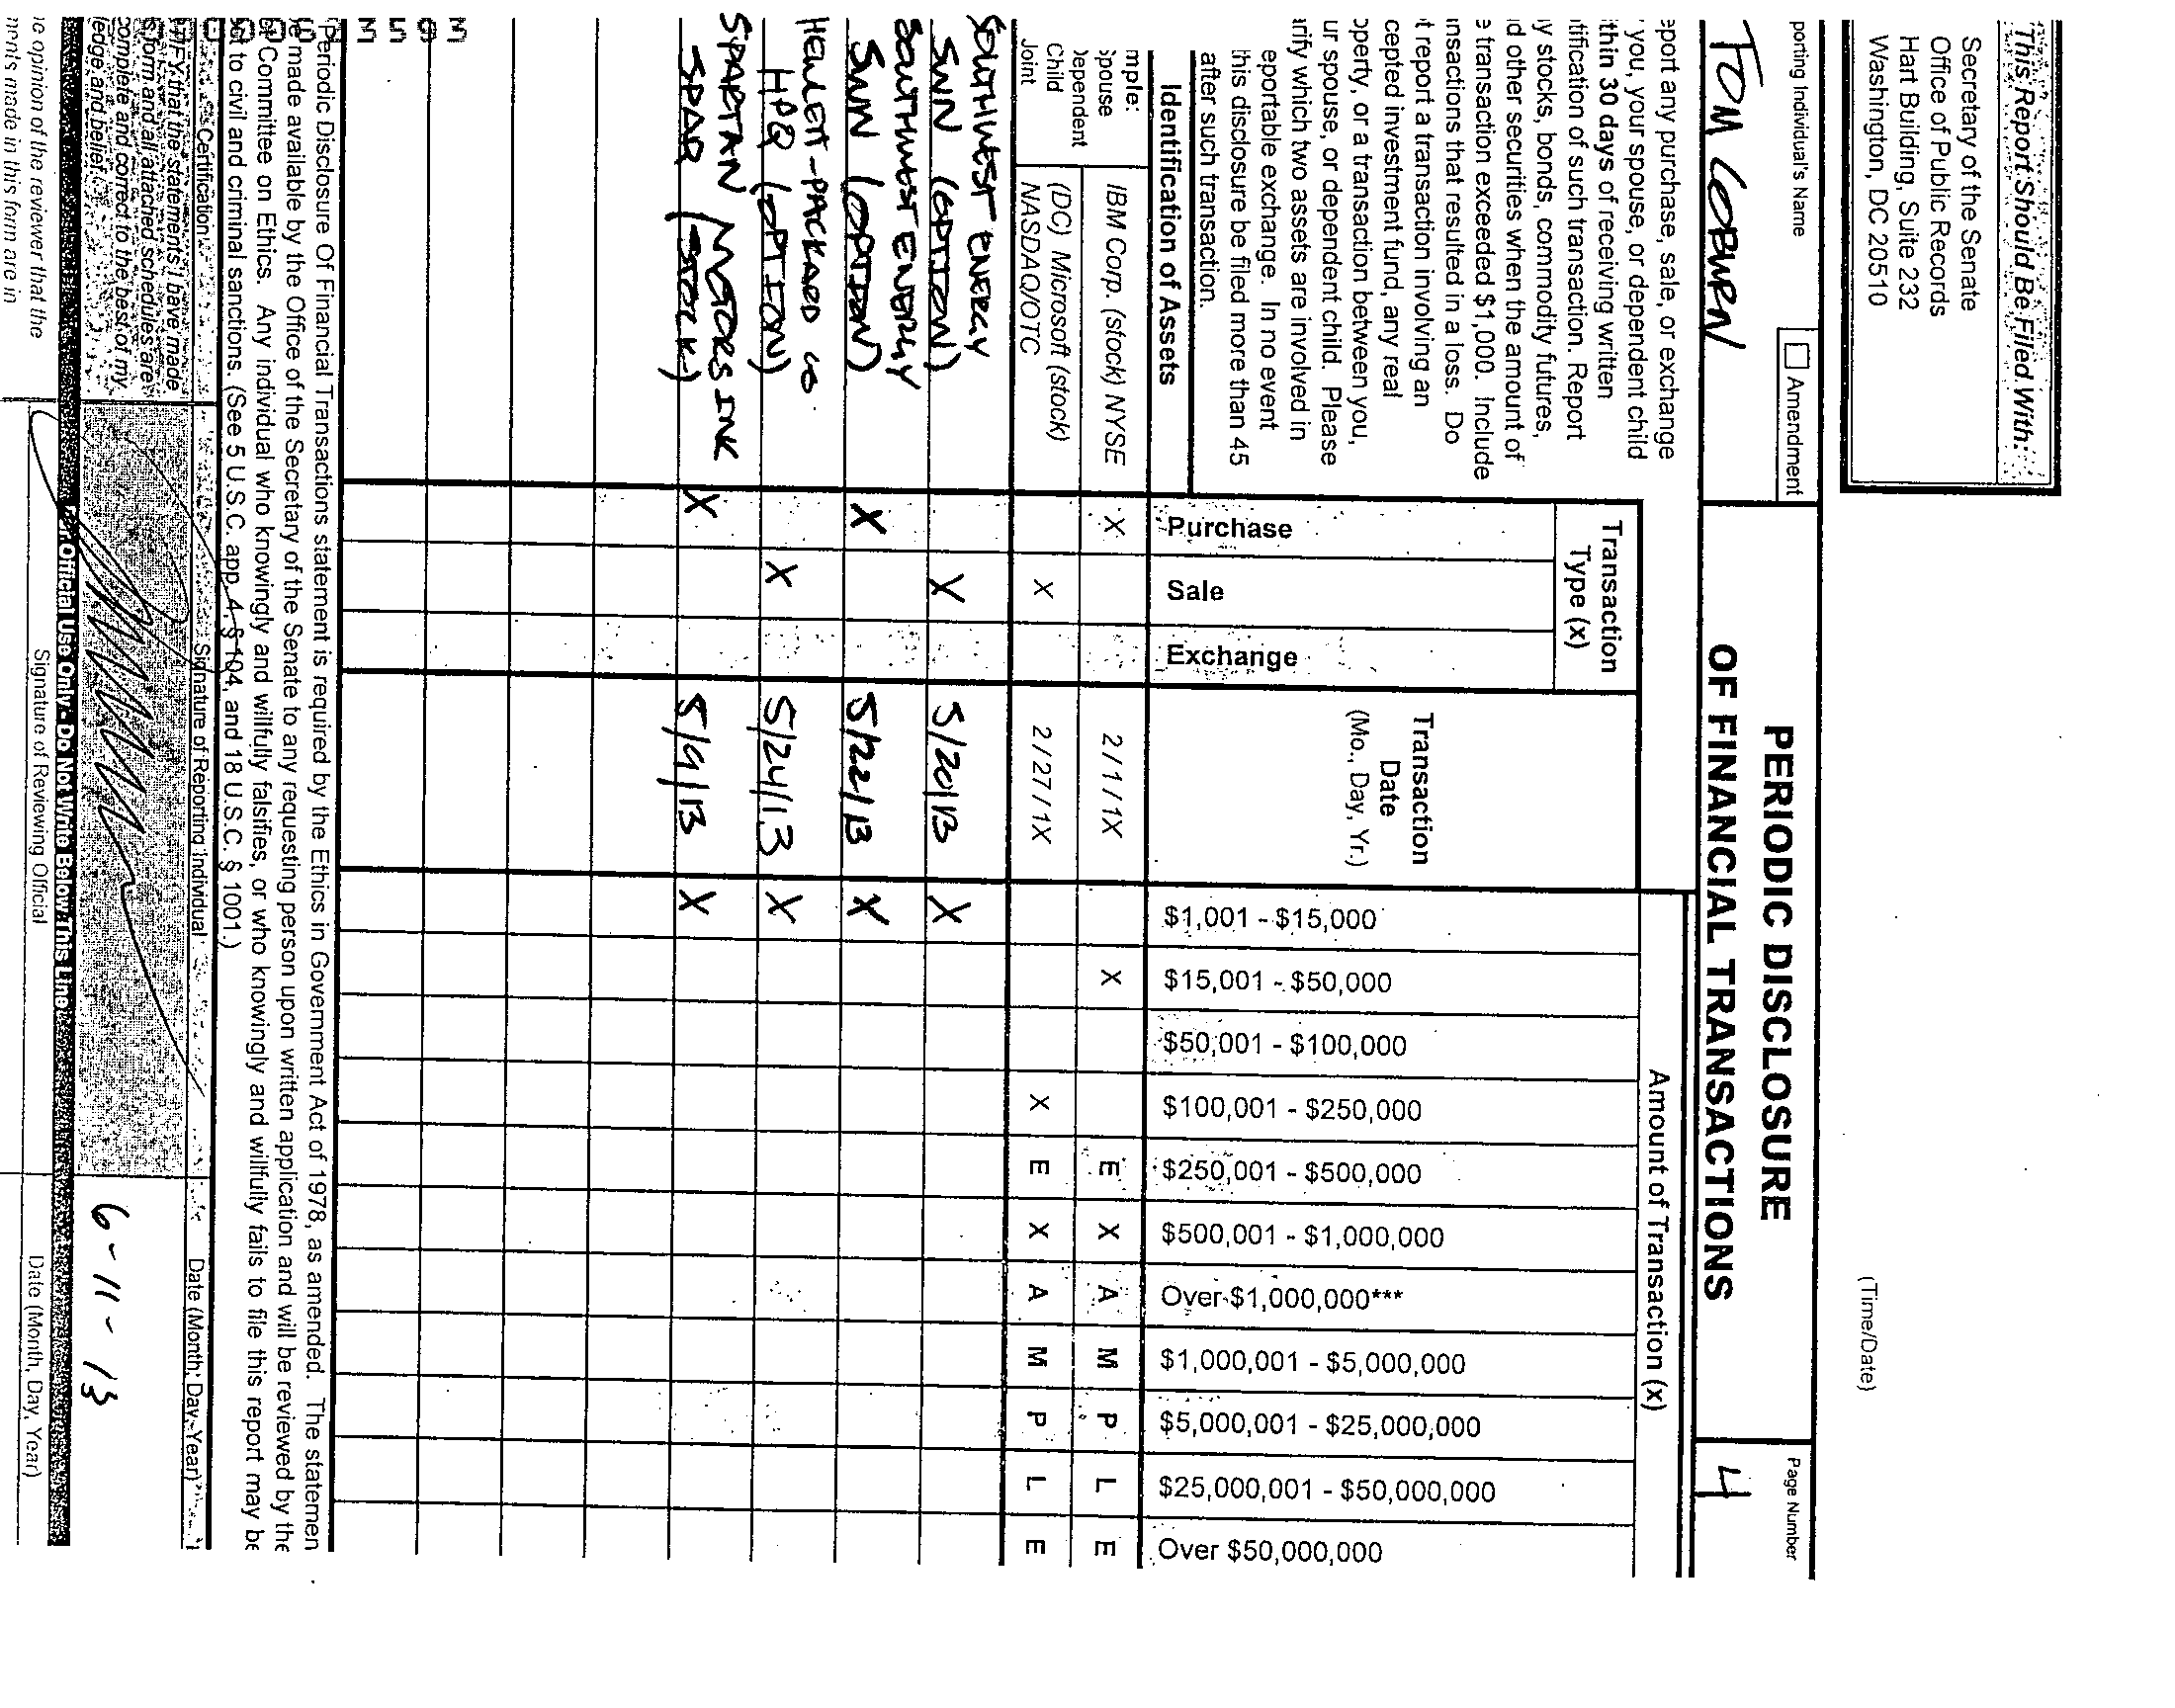 This Report Should Be Filed With:
Secretary of the Senate
Office of Public Records
Hart Building, Suite 232
Washington, DC 20510
(Time/Date)
porting Individual's Name
Amendment
TOM COBURN
PERIODIC DISCLOSURE
OF FINANCIAL TRANSACTIONS
Page Number
4
eport any purchase, sale, or exchange
you, your spouse, or dependent child
thin 30 days of receiving written
tification of such transaction. Report
y stocks, bonds, commodity futures,
d other securities when the amount of
e transaction exceeded $1,000. Include
nsactions that resulted in a loss. Do
t report a transaction involving an
cepted investment fund, any real
operty, or a transaction between you,
ur spouse, or dependent child. Please
rify which two assets are involved in
eportable exchange. In no event
this disclosure be filed more than 45
after such transaction.
Identification of Assets
Transaction
Type (x)
Purchase
Sale
Exchange
Transaction
Date
(Mo., Day, Yr.)
Amount of Transaction (x)
$1,001 - $15,000
$15,001 - $50,000
$50,001 - $100,000
$100,001 - $250,000
$250,001 - $500,000
$500,001 - $1,000,000
Over $1,000,000***
$1,000,001 - $5,000,000
$5,000,001 - $25,000,000
$25,000,001 - $50,000,000
Over $50,000,000
mple:
Spouse
Dependent
Child
Joint
IBM Corp. (stock) NYSE X 2/1/1X X E X A M P L E
(DC) Microsoft (stock)
NASDAQ/OTC X 2/27/1X X E X A M P L E
SOUTHWEST ENERGY
SWN (OPTION) X 5/20/13 X
SOUTHWEST ENERGY
SWN (OPTION) X 5/22/13 X
HEWLET-PACKARD CO
HPQ (OPTION) X 5/24/13 X
SPARTAN MOTORS INK
SPAR (STOCK) X 5/9/13 X
Periodic Disclosure Of Financial Transactions statement is required by the Ethics in Government Act of 1978, as amended. The statemen
e made available by the Office of the Secretary of the Senate to any requesting person upon written application and will be reviewed by the
Committee on Ethics. Any individual who knowingly and willfully falsifies, or who knowingly and willfully fails to file this report may be
ct to civil and criminal sanctions. (See 5 U.S.C. app. 4, § 104, and 18 U.S.C. § 1001.)
Certification
Signature of Reporting Individual
Date (Month, Day, Year)
TIFY that the statements I have made
s form and all attached schedules are
complete and correct to the best of my
ledge and belief.
6-11-13
For Official Use Only - Do Not Write Below This Line
e opinion of the reviewer that the
ments made in this form are in
Signature of Reviewing Official
Date (Month, Day, Year)